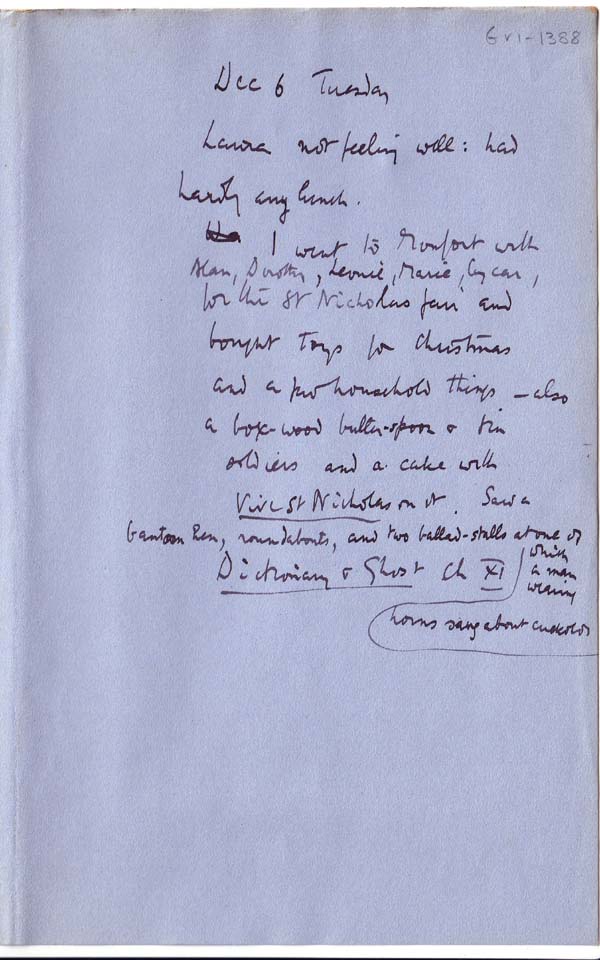 GVI-1388
Dec 6 Tuesday
Laura not feeling well: had
hardly any lunch.
I went to Monfort with
Alan, Dorothy, Leonie, Marie,
for the St Nicholas fair and
bought toys for Christmas
and a few household things – also
a box-wood butter-spoon & tin
soldiers and a cake with
Vive St Nicholas on it. Saw a
Men, roundabouts, and two ballad-stalls at one of
which
a man
wearing
horns sang about cuckolds
Dictionary & Ghost Ch XI